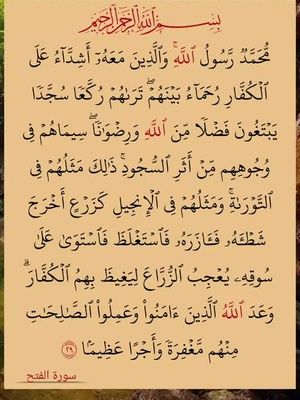 بِسْمِ ٱللَّهِ ٱلرَّحْمَٰنِ ٱلرَّحِيمِ
مُّحَمَّدٌ رَّسُولُ ٱللَّهِۚ وَٱلَّذِينَ مَعَهُۥٓ أَشِدَّآءُ عَلَى
ٱلْكُفَّارِ رُحَمَآءُ بَيْنَهُمْۖ تَرَىٰهُمْ رُكَّعًا سُجَّدًا
يَبْتَغُونَ فَضْلًا مِّنَ ٱللَّهِ وَرِضْوَٰنًاۖ سِيمَاهُمْ فِى
وُجُوهِهِم مِّنْ أَثَرِ ٱلسُّجُودِۚ ذَٰلِكَ مَثَلُهُمْ فِى
ٱلتَّوْرَىٰةِۚ وَمَثَلُهُمْ فِى ٱلْإِنجِيلِ كَزَرْعٍ أَخْرَجَ
شَطْـَٔهُۥ فَـَٔازَرَهُۥ فَٱسْتَغْلَظَ فَٱسْتَوَىٰ عَلَىٰ
سُوقِهِۦ يُعْجِبُ ٱلزُّرَّاعَ لِيَغِيظَ بِهِمُ ٱلْكُفَّارَۗ
وَعَدَ ٱللَّهُ ٱلَّذِينَ ءَامَنُوا۟ وَعَمِلُوا۟ ٱلصَّٰلِحَٰتِ
مِنْهُم مَّغْفِرَةً وَأَجْرًا عَظِيمًۢا ٢٩
سورة الفتح